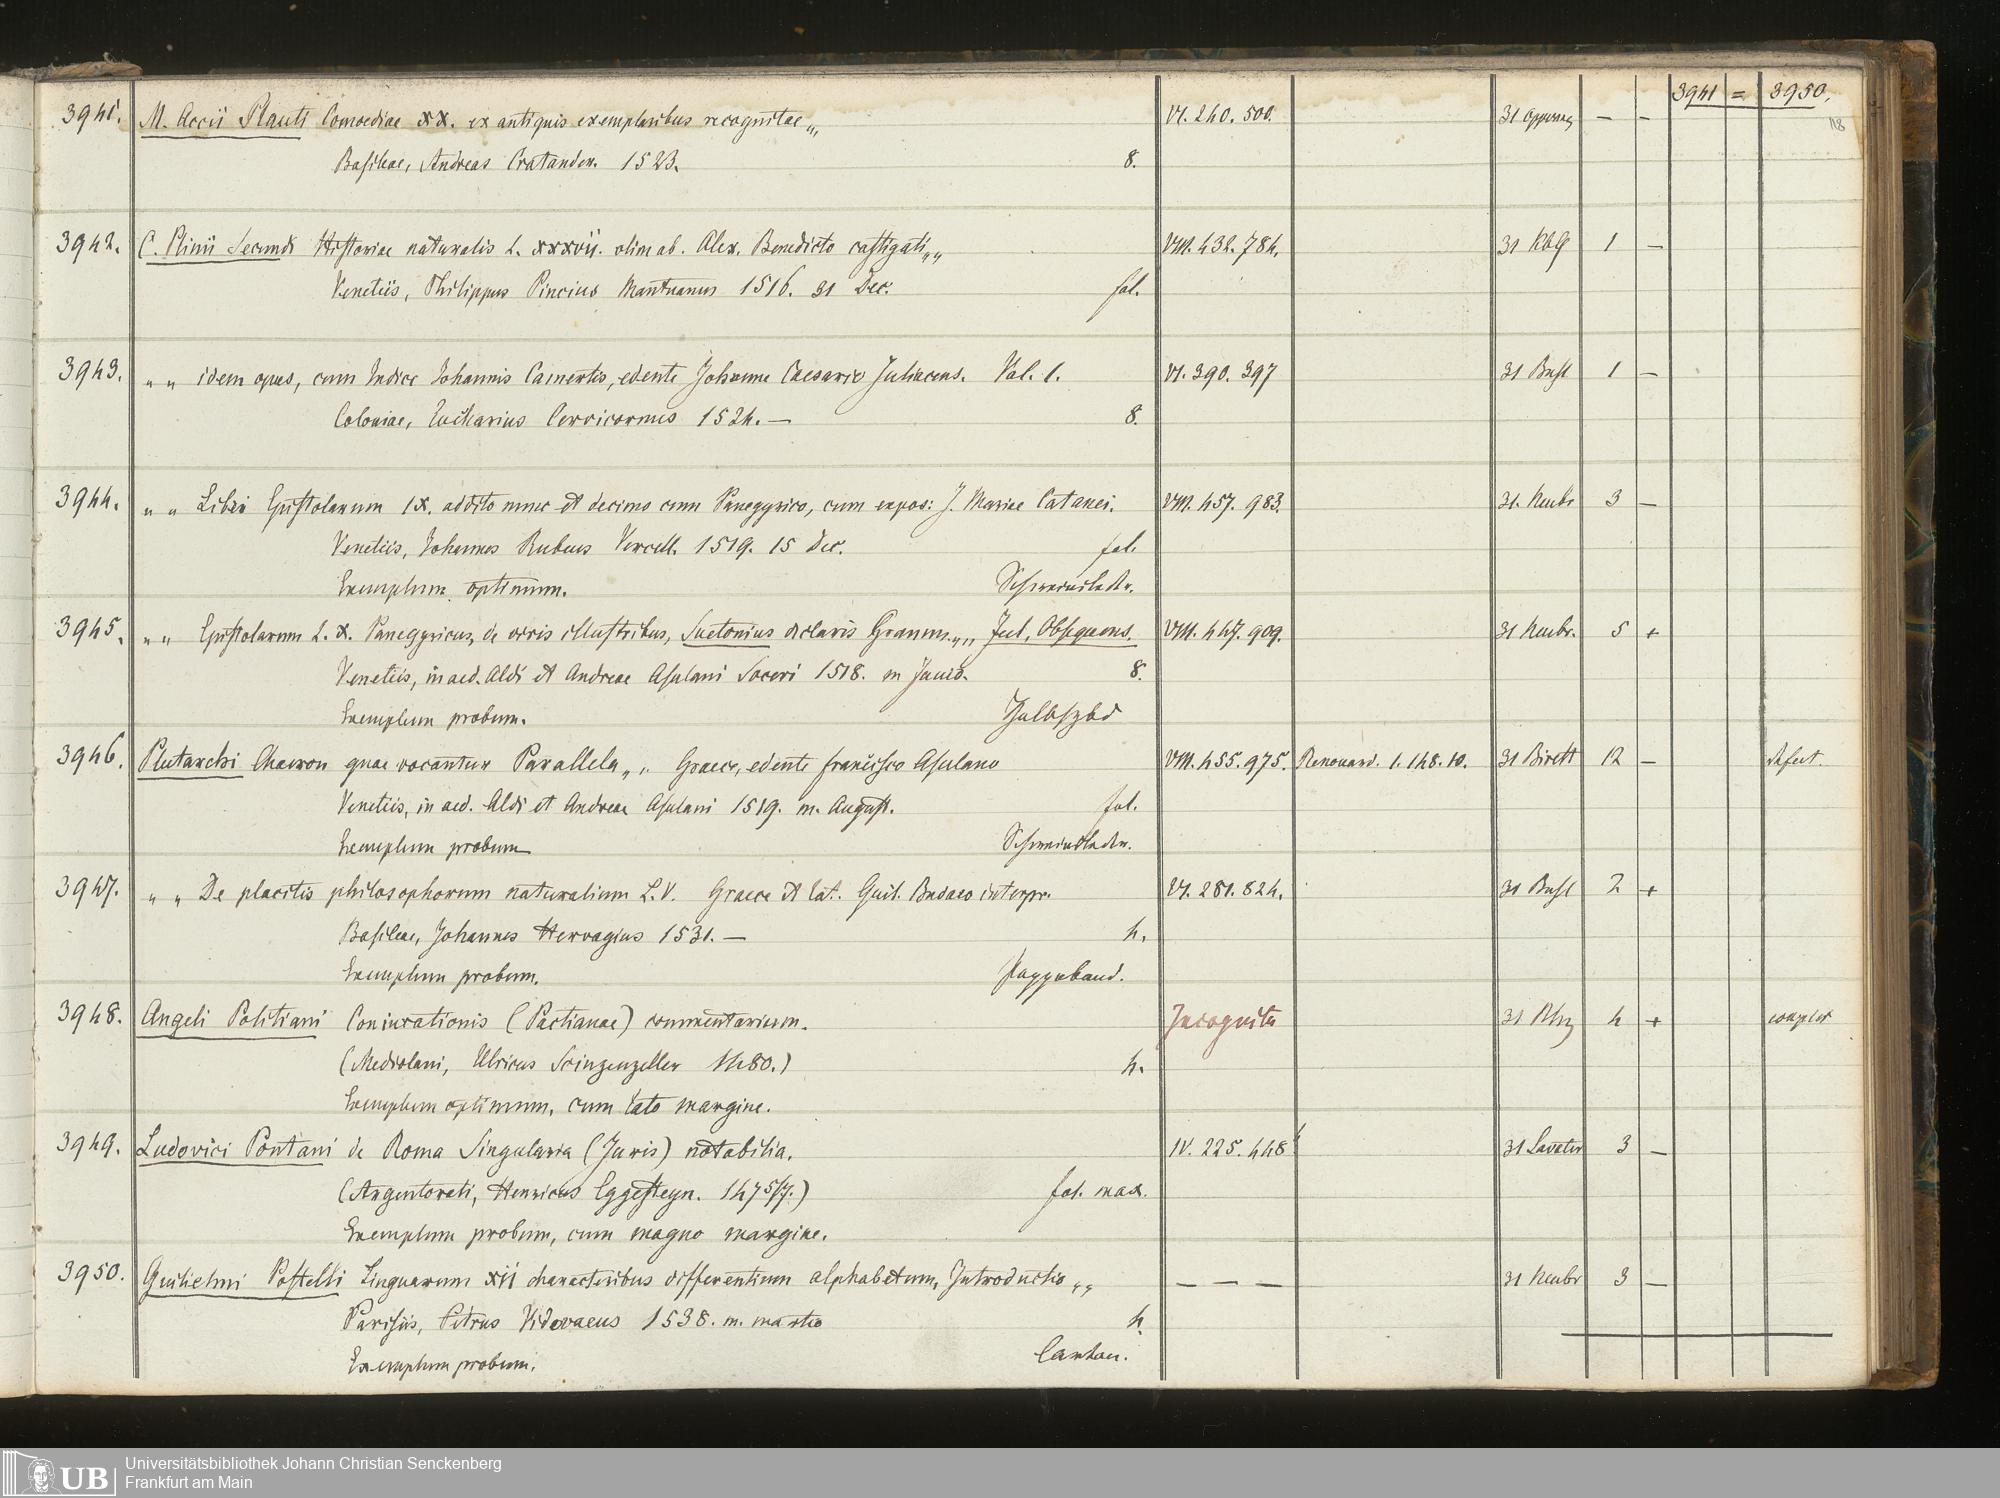 3941 = 3950.
118
3941. M. Accii Plauti Comoediae xx. ex antiquis exemplaribus recognitae „ VI. 240. 500. 31 — —
Basileae, Andreas Cratander. 1523. 8.
3942. C. Plinii Secundi Historiae naturalis L. xxxvii. olim ab. Alex. Benedicto castigati „ „ VIII. 432. 784. 31 1 —
Venetiis, Philippus Pincius Mantuanus 1516. 31 Dec. fol.
3943. „ „ idem opus, cum Indice Johannis Camertis, edente Johanne Caesario Juliacens. Vol. 1. VI. 390. 397 31 1 —
Coloniae, Eucharius Cervicornus 1524. — 8.
3944. „ „ Libri Epistolarum IX. addito nunc et decimo cum Panegyrico, cum expos: J. Mariae Catanei. VIII. 457. 983. 31. 3 —
Venetiis, Johannes Rubeus Vercell. 1519. 15 Dec. fol.
Exemplum optimum. Schweinsledr.
3945. „ „ Epistolarum L. X. Panegyricus, de viris illustribus, Suetonius de claris Gramm. „ „ Jul. Obsequens. VIII. 447. 909. 31 5 +
Venetiis, in aed. Aldi et Andreae Asulani Soceri 1518. m Junio. 8.
Exemplum probum.
3946. Plutarchi Chaeron quae vocantur Parallela „ „ Graece, edente francisco Asulano VIII. 455. 975. Renouard. 1. 148. 10. 31 Birett 12 — defect.
Venetiis, in aed. Aldi et Andreae Asulani 1519. m. August. fol.
Exemplum probum Schweinsledr.
3947. „ „ De placitis philosophorum naturalium L. V. Graece et Lat. Guil. Budaeo interpr. VI. 281. 824. 31 2 +
Basileae, Johannes Hervagius 1531. — 4.
Exemplum probum. Pappeband.
3948. Angeli Politiani Coniurationis (Pactianae) commentarium. Incognita 31 4 + complet
(Mediolani, Ulricus Scinzenzeller 1480.) 4.
Exemplum optimum, cum lato margine.
3949. Ludovici Pontani de Roma Singularia (Juris) notabilia. IV. 225. 448 31 3 —
(Argentorati, Henricus Eggesteyn. 1475/7.) fol. max.
Exemplum probum, cum magno margine.
3950. Guilielmi Postelli Linguarum xii characteribus differentium alphabetum, Introductio „ „ — — — 31 3 —
Parisiis, Petrus Vidovaeus 1538. m. martio 4
Exemplum probum. Carton.
UB Universitätsbibliothek Johann Christian Senckenberg
Frankfurt am Main